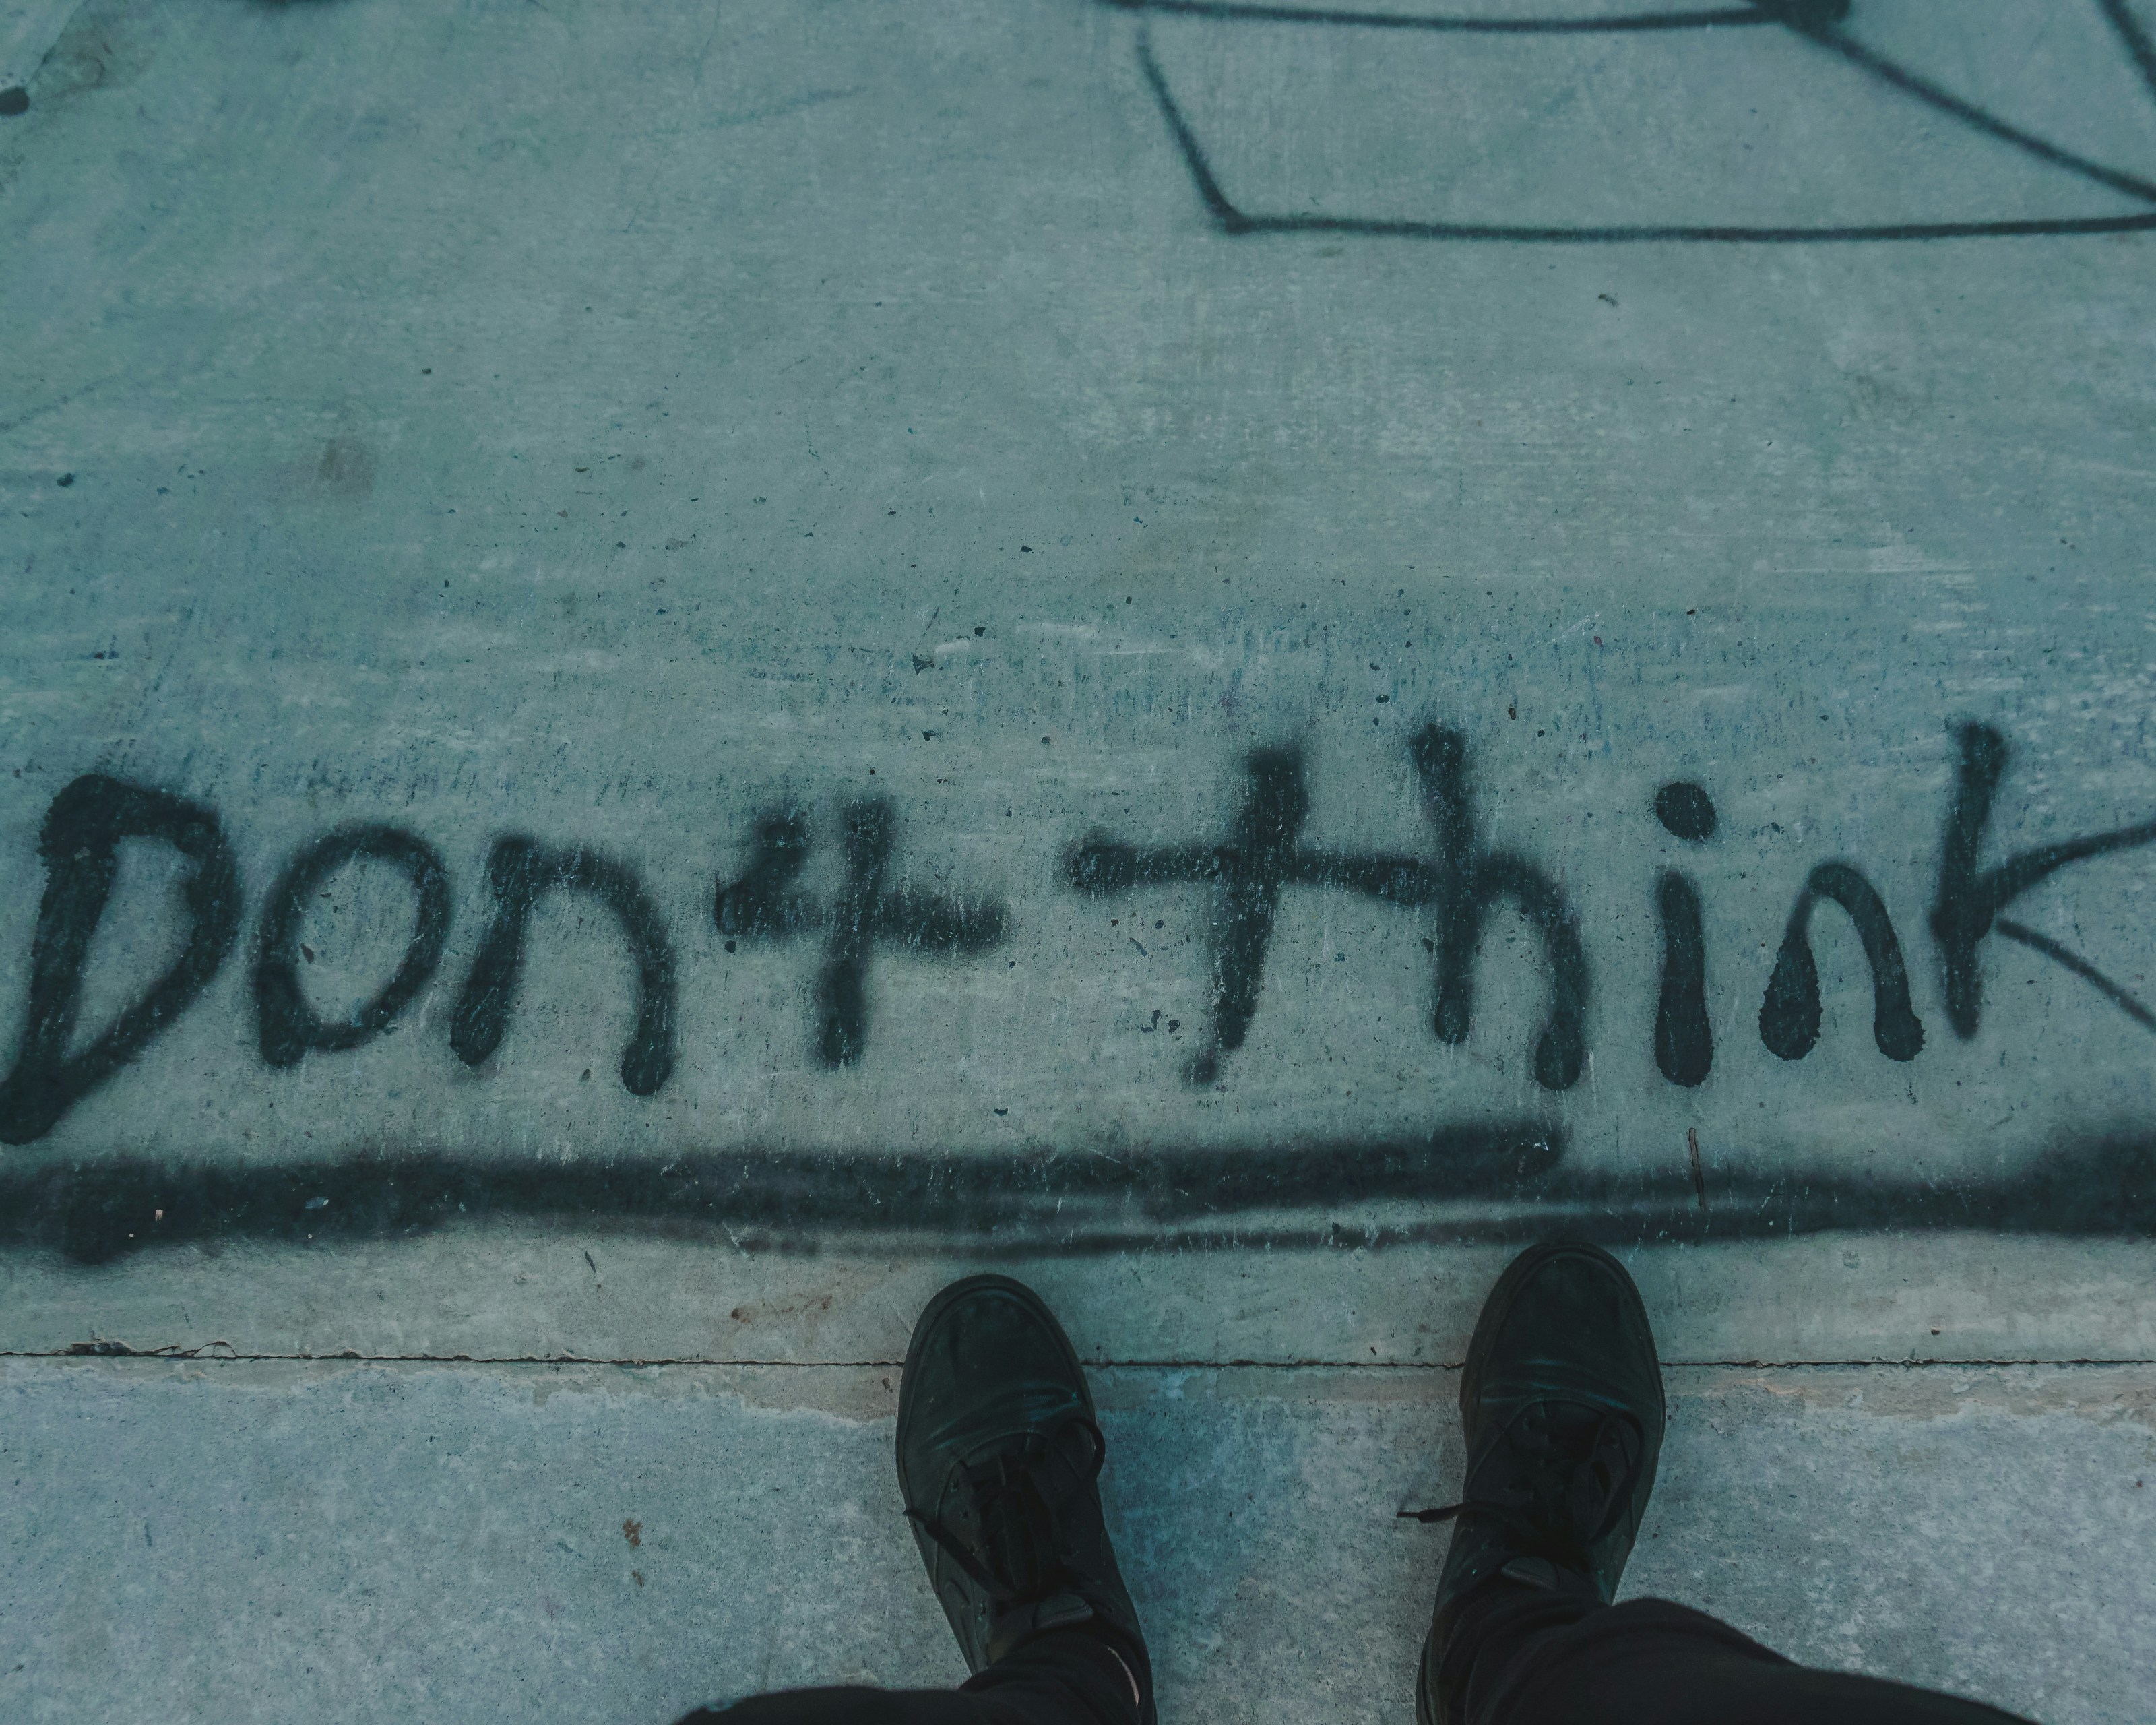 Don't think